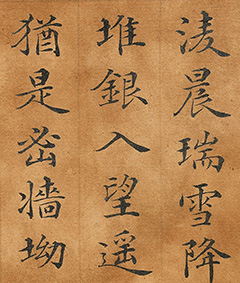 淩晨瑞雪降
堆銀入望遥
猶是密牆坳